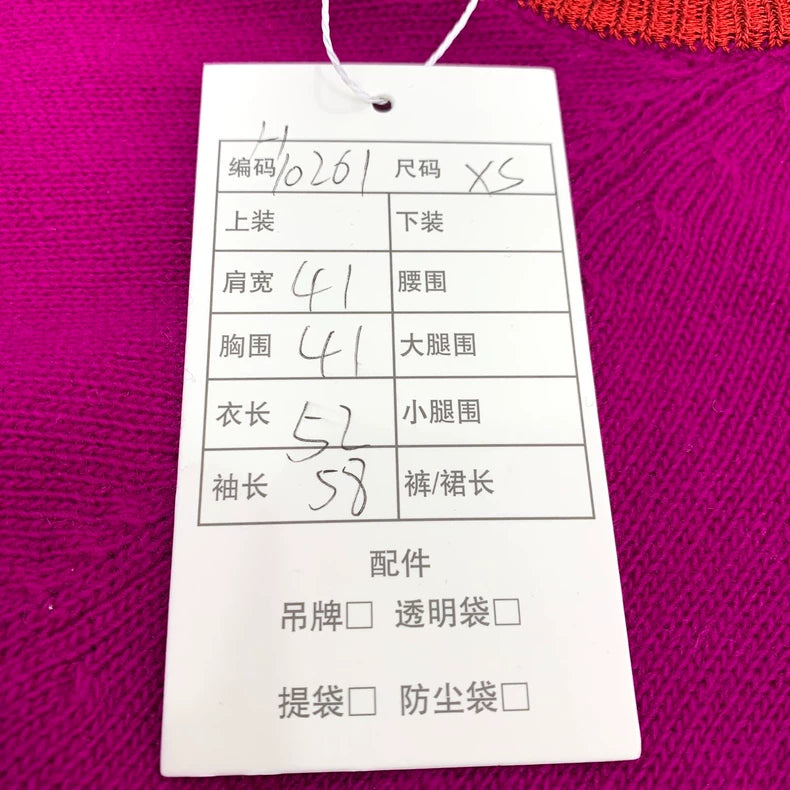 编码 H10261 尺码 XS
上装 下装
肩宽 41 腰围
胸围 41 大腿围
衣长 52 小腿围
袖长 58 裤/裙长
配件
吊牌□ 透明袋□
提袋□ 防尘袋□